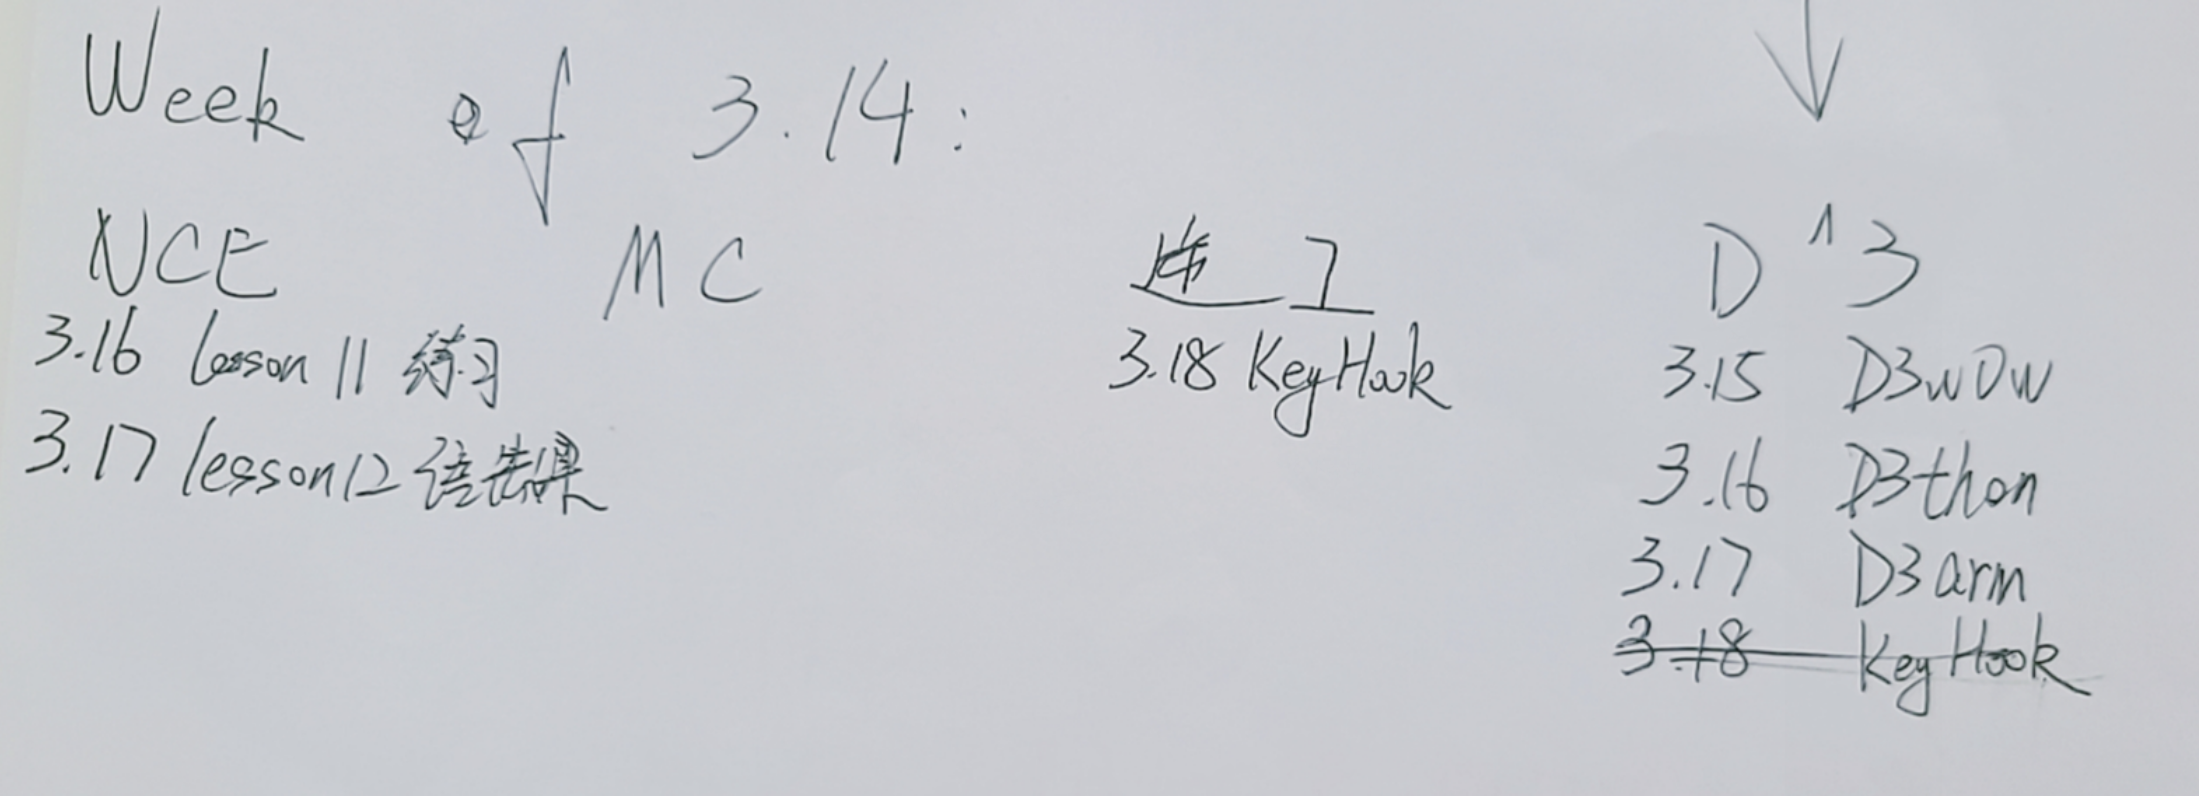 Week of 3.14:
NCE MC 逆工 D^3
3.16 lesson 11 练习
3.17 lesson12 语法课
3.18 KeyHook
3.15 D3w0w
3.16 D3thon
3.17 D3arm
3.18 KeyHook